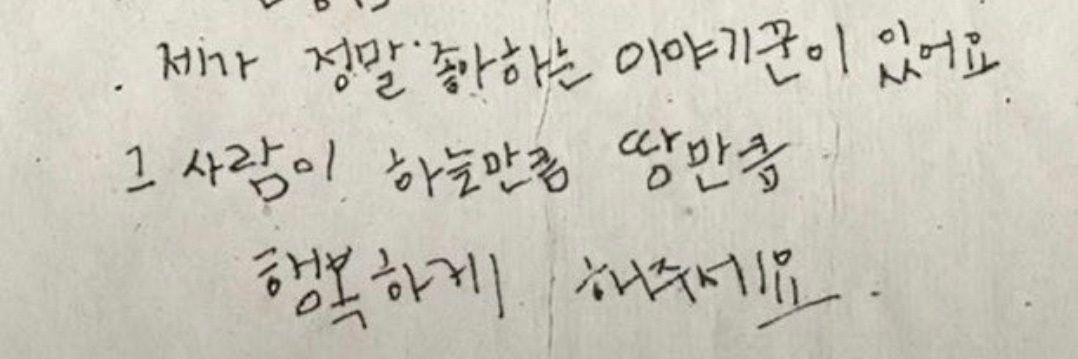 제가 정말 좋아하는 이야기꾼이 있어요
그 사람이 하늘만큼 땅만큼
행복하게 해주세요.